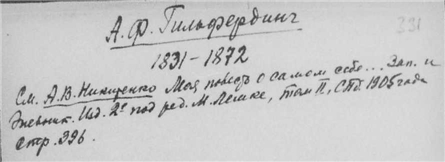 А. Ф. Гильфердинг
331
1831-1872
См. А. В. Никитенко Моя повесть о самом себе... Зап. и
дневник. Изд. 2е под ред. М. Лемке, том II, СПб. 1905 года
стр. 396.